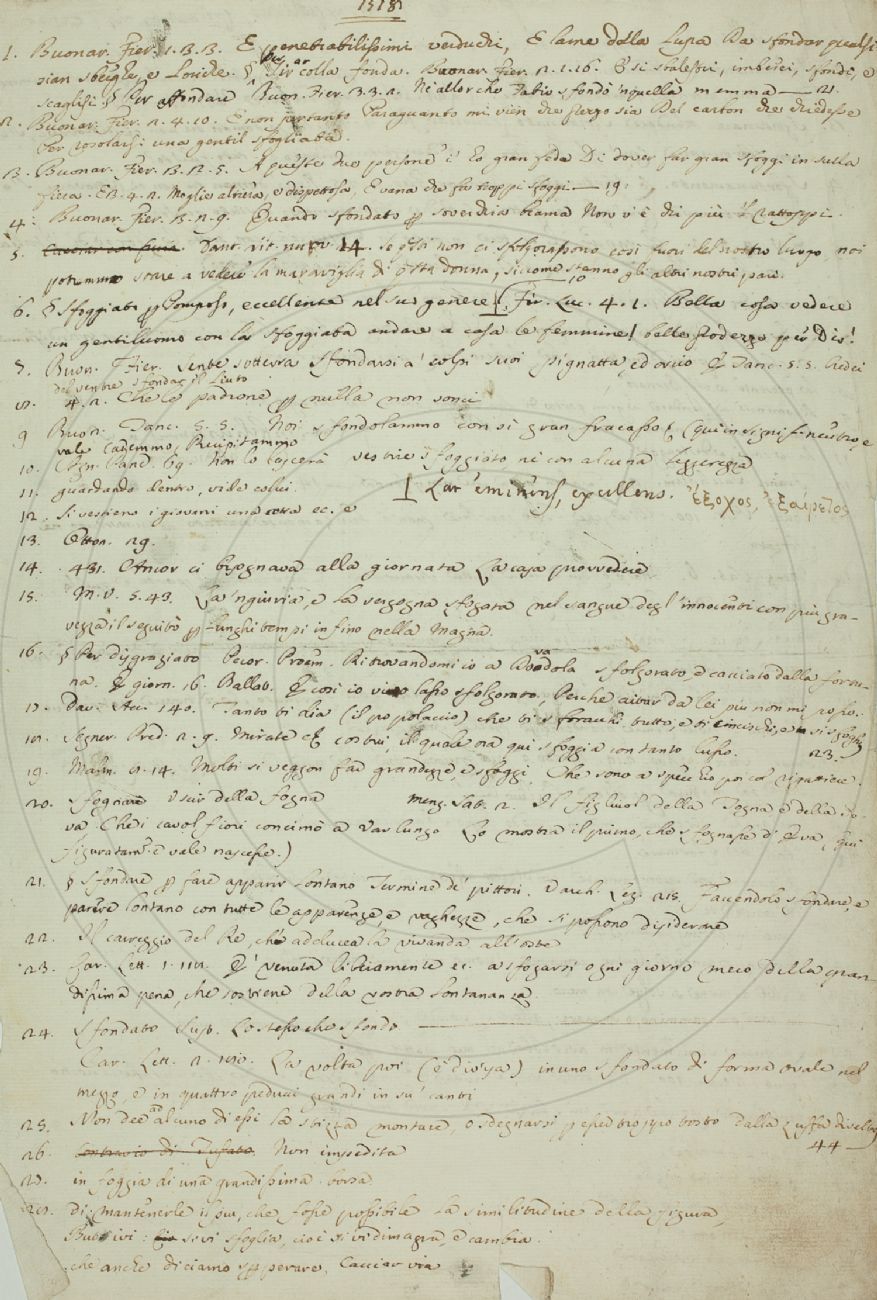 1. Buonar. Fier. 1. 3. 3. E penetrabilissimi verduchi, E lame della Lupa Da sfondar qualsi
sian e Loriche. § colla fonda. Buonar. Fier. 2. 1. 16. E si balestri, imberci, sfondi, e
scaglisi § Per affondare Buon. Fier. 3. 3. 2. Nè allor che Fabio sfondò 'n quella memma — 21.
2. Buonar. Fier. 2. 4. 10. E non pertanto Paraguanto mi vien che purgo sia Del carton che chiedesse
Per rosolarsi una gentil sfogliata.
3. Buonar. Fier. 3. 2. 5. A queste due persone è Eo gran feda Di dover far gran sfoggi in sulla
fiera. E 3. 4. 2. Moglie altiera, e dispettosa, E vana che fa troppi sfoggi. — 19.
4. Buonar. Fier. 3. 2. 9. Quando sfondato soverchia brama Non v'è chi più 'l rattoppi.
5. Cacciar con furia. Dant. vit. nuov. 14. se questi non ci sfolgorassono così fuori del nostro luogo, noi
potremmo stare a vedere la maraviglia di questa donna, siccome stanno gli altri nostri pari.
6. § Sfoggiato per Pomposo, eccellente nel suo genere. Fir. Luc. 4. 1. Bella cosa vedere 10
un gentiluomo con la sfoggiata andare a casa le femmine! bella prodezza per Dio!
7. Buon. Fier. Sente sottovra sfondarsi a' colpi suoi pignatta, ed orcio E Tanc. 5. 5. Credei
del ventre sfondar il liuto
8. 4. 2. Che 'l padrone per nulla non sono
9 Buon. Tanc. 5. 5. Noi sfondolammo con sì gran fracasso (qui in signif. neutro, e
vale Cademmo, Precipitammo
10. Agn. Pand. 69. Non lo lascerà vestire sfoggiato nè con alcuna leggerezza
11. guardando dentro, vide colui. Lat. eminens, excellens. ἔξοχος, ἐξαίρετος
12. Si vestieno i giovani una cotta ec. e
13. Otton. 29.
14. 431. Ancor ci bisognava alla giornata La casa provvedere
15. M. V. 5. 43. La 'ngiuria, e la vergogna sfogata nel sangue degl'innocenti con più gra-
vezza il seguitò per lunghi tempi infino nella Magna.
16. § Per disgraziato Pecor. Proem. Ritrovandomi io a Dovadola sfolgorato, e cacciato dalla fortu-
na. E giorn. 16. Ballat. E così io vivo lasso sfolgorato, Perchè aitar da lei più non mi posso.
17. Dav. Acc. 140. Tanto ti dia (il popolaccio) che ti sforacchi tutto, e ti cincischi, e si sfoghi
18. Segner. Pred. 2. 9. Mirate costui, il quale ora qui sfoggia con tanto lusso. 23.
19. Malm. 9. 14. Molti si veggon far grandezze, e sfoggi, Che sono a specchio poi col rigattiere.
20. sfognare Uscir della fogna Menz. Sat. 2. Il figliuol della Togna e della
va Che i cavol fiori concimò a Varlungo Lo mostra il primo, che sfognasse di Eva (qui
figuratam. e vale nascesse.)
21. § sfondare per fare apparir lontano Termine de' pittori. Varch. Lez. 215. Facendolo sfondare, e
parere lontano con tutte le apparenze, e vaghezze, che si possono disiderare
22. Il carreggio del Re, che adducea la vivanda all'oste
23. Car. Lett. 1. 118. E' venuta liberamente ec. a sfogarsi ogni giorno meco della gran-
dissima pena, che sostiene della vostra lontananza.
24. Sfondato Sust. Lo stesso che sfondo —
Car. Lett. 2. 180. La volta poi (è diviga) in uno sfondato di forma ovale nel
mezzo, e in quattro peducci grandi in su' canti
25. Non dee ad alcuno di essi la stizza montare, o sdegnarsi troppo tosto dalla zuffa divella
26. Contrario di Tufato. Non impedita 44 —
27. in foggia di una grandissima borsa.
28. di mantenerle il più, che fosse possibile la similitudine della figura,
Buti ivi: si vi sfoglia, cioè si vi dimagra, e cambia.
che anche diciamo sperperare, Cacciar via